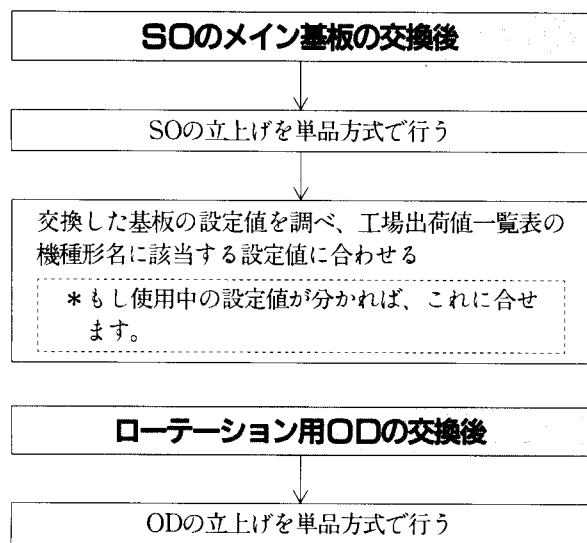 SOのメイン基板の交換後
SOの立上げを単品方式で行う
交換した基板の設定値を調べ、工場出荷値一覧表の
機種形名に該当する設定値に合わせる
＊もし使用中の設定値が分かれば、これに合せ
ます。
ローテーション用ODの交換後
ODの立上げを単品方式で行う